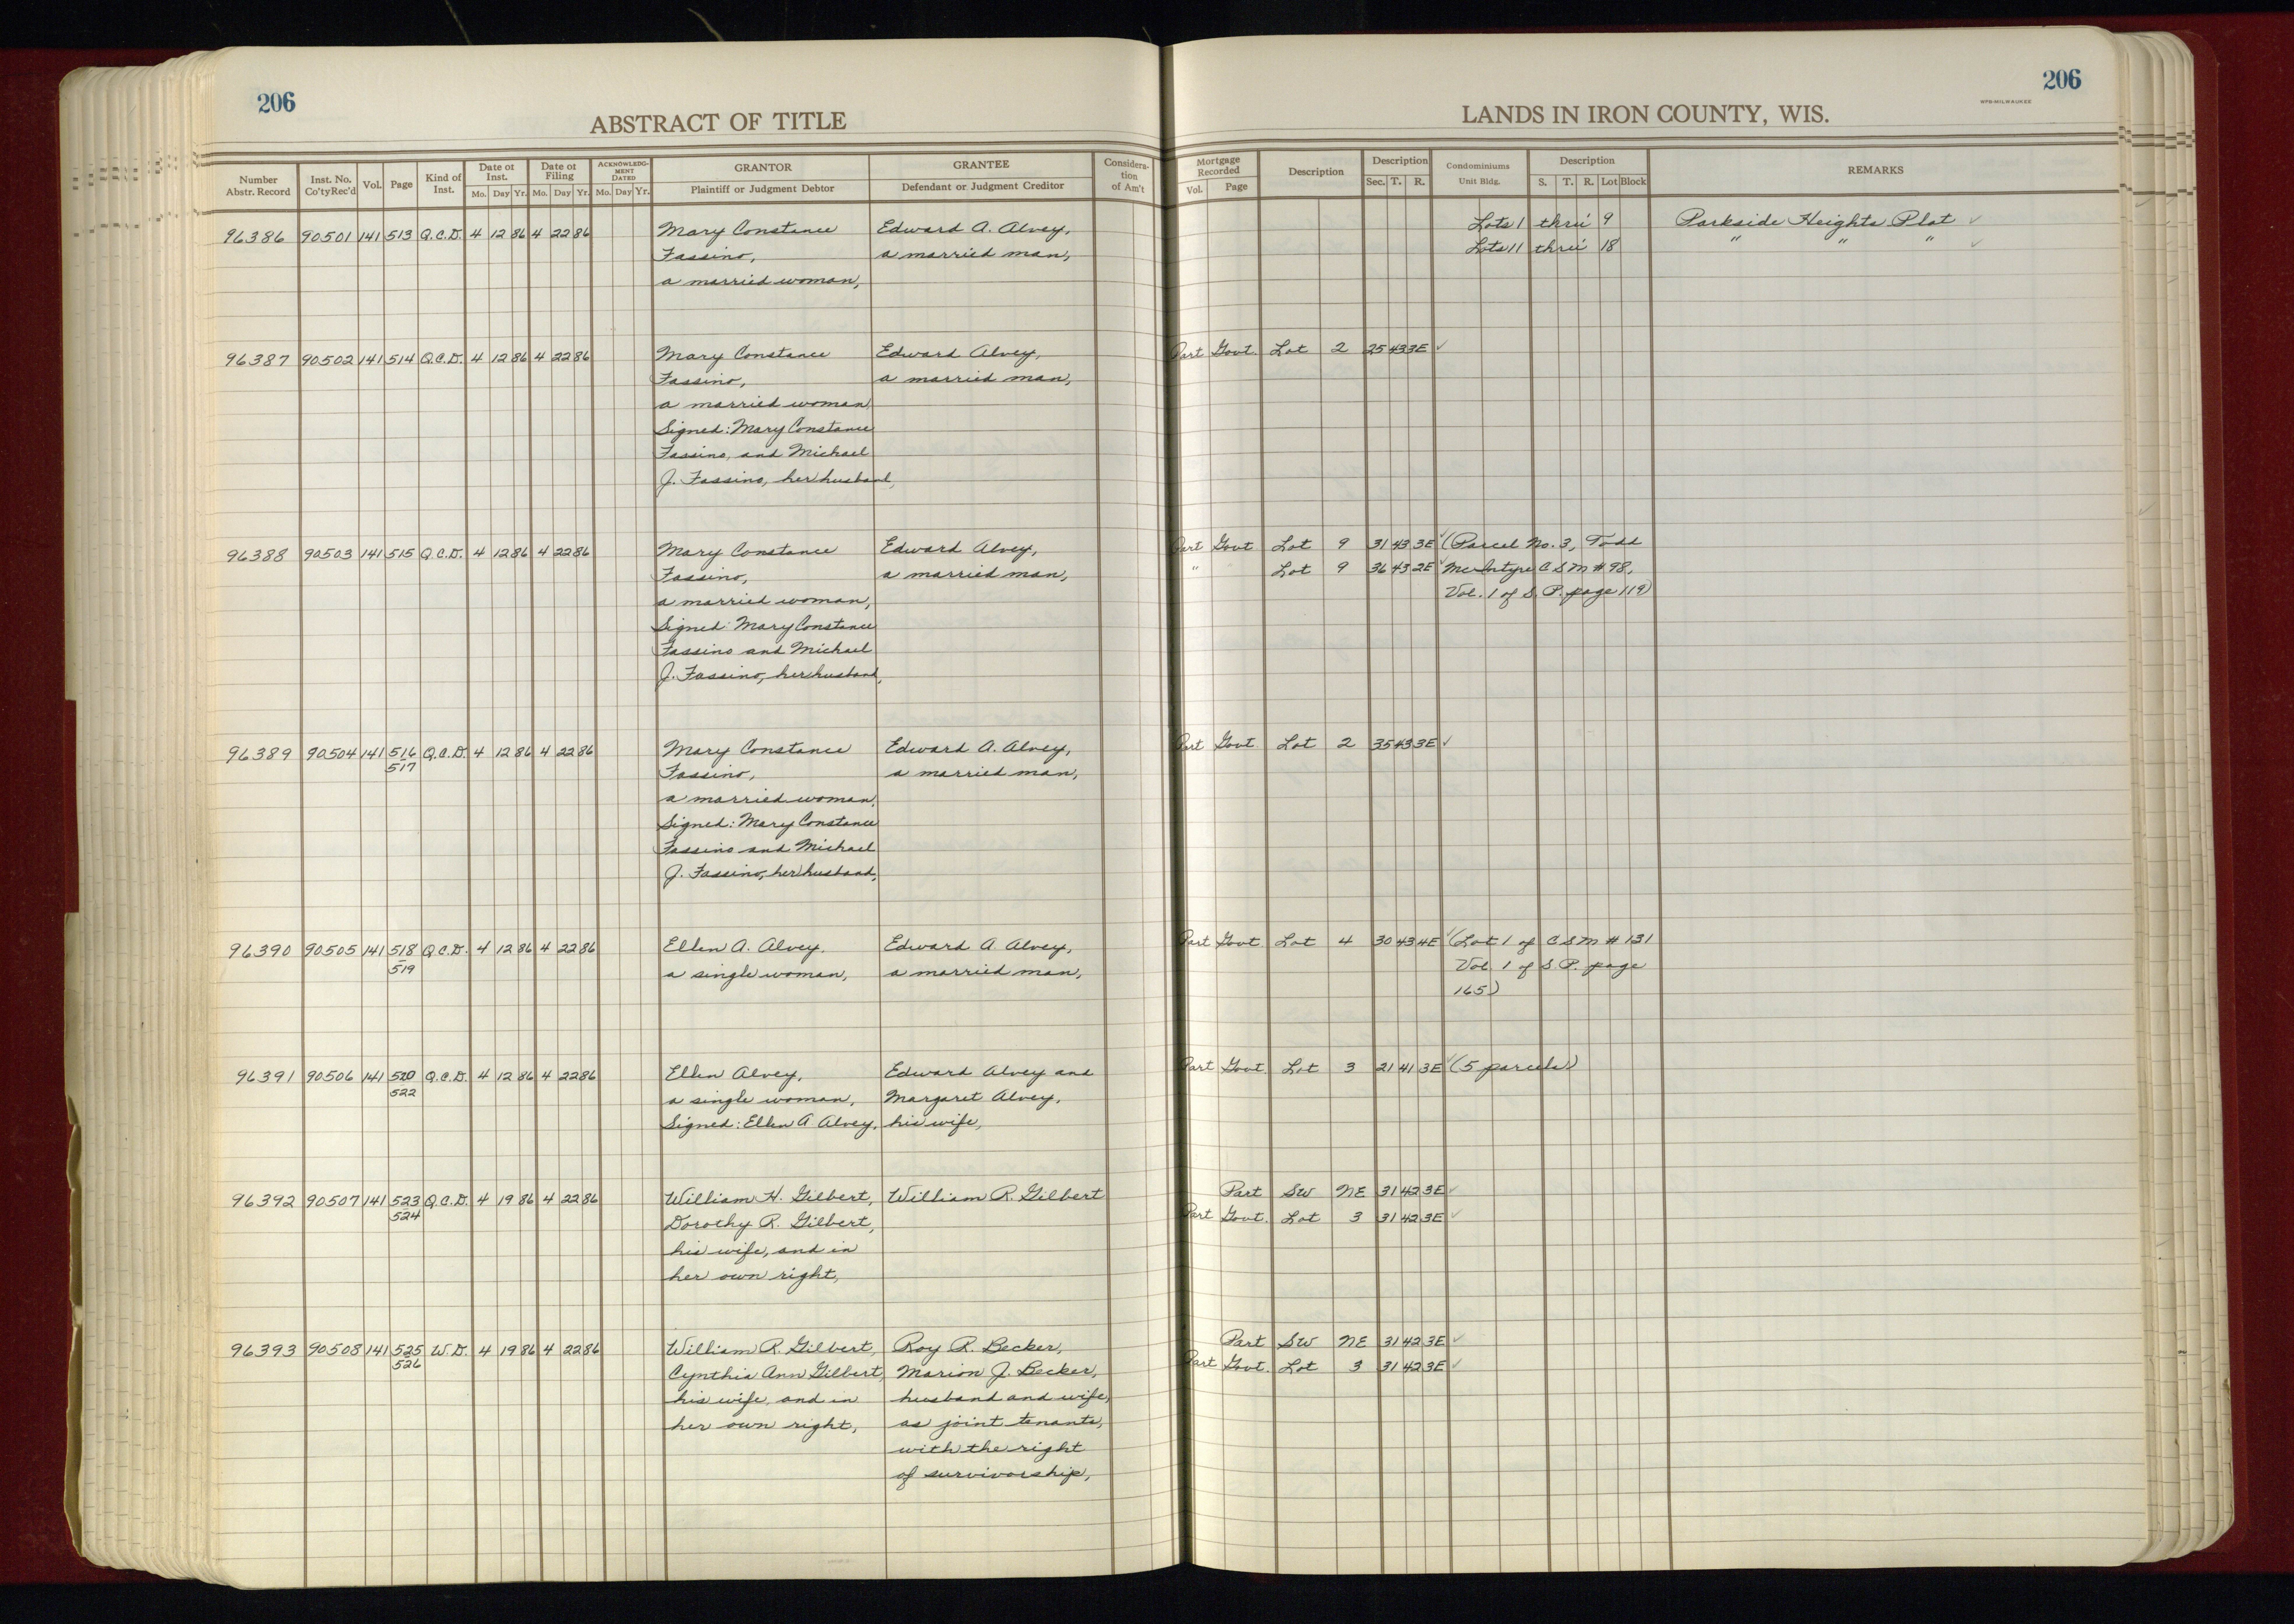 206
ABSTRACT OF TITLE
Number Abstr. Record | Inst. No. Co'ty Rec'd | Vol. | Page | Kind of Inst. | Date of Inst. Mo. Day Yr. | Date of Filing Mo. Day Yr. | ACKNOWLEDGMENT DATED Mo. Day Yr. | GRANTOR Plaintiff or Judgment Debtor | GRANTEE Defendant or Judgment Creditor | Considera-tion of Am't
96386 90501 141 513 Q.C.D. 4 12 86 4 22 86 Mary Constance Edward A. Alvey,
Fassino, a married man,
a married woman,
96387 90502 141 514 Q.C.D. 4 12 86 4 22 86 Mary Constance Edward Alvey,
Fassino, a married man,
a married woman,
Signed: Mary Constance
Fassino, and Michael
J. Fassino, her husband,
96388 90503 141 515 Q.C.D. 4 12 86 4 22 86 Mary Constance Edward Alvey,
Fassino, a married man,
a married woman,
Signed: Mary Constance
Fassino and Michael
J. Fassino, her husband,
96389 90504 141 516 Q.C.D. 4 12 86 4 22 86 Mary Constance Edward A. Alvey,
517 Fassino, a married man,
a married woman,
Signed: Mary Constance
Fassino and Michael
J. Fassino, her husband,
96390 90505 141 518 Q.C.D. 4 12 86 4 22 86 Ellen A. Alvey, Edward A. Alvey,
519 a single woman, a married man,
96391 90506 141 520 Q.C.D. 4 12 86 4 22 86 Ellen Alvey, Edward Alvey and
522 a single woman, Margaret Alvey,
Signed: Ellen A Alvey, his wife,
96392 90507 141 523 Q.C.D. 4 19 86 4 22 86 William H. Gilbert, William R. Gilbert
524 Dorothy R. Gilbert,
his wife, and in
her own right,
96393 90508 141 525 W.D. 4 19 86 4 22 86 William R. Gilbert, Roy R. Becker,
526 Cynthia Ann Gilbert, Marion J. Becker,
his wife, and in husband and wife,
her own right, as joint tenants,
with the right
of survivorship,
206
WPB-MILWAUKEE
LANDS IN IRON COUNTY, WIS.
Mortgage Recorded Vol. Page | Description | Description Sec. T. R. | Condominiums Unit Bldg. | Description S. T. R. Lot Block | REMARKS
Lots 1 thru 9 Parkside Heights Plat ✓
Lots 11 thru 18 " " " ✓
Part Govt. Lot 2 25 43 3E ✓
Part Govt Lot 9 31 43 3E ✓ (Parcel No. 3, Todd
" Lot 9 36 43 2E ✓ McIntyre C S M # 98,
Vol. 1 of S. P. page 119)
Part Govt Lot 2 35 43 3E ✓
Part Govt Lot 4 30 43 4E ✓ (Lot 1 of C S M # 131
Vol. 1 of S. P. page
165)
Part Govt. Lot 3 21 41 3E ✓ (5 parcels)
Part SW NE 31 42 3E ✓
Part Govt. Lot 3 31 42 3E ✓
Part SW NE 31 42 3E ✓
Part Govt. Lot 3 31 42 3E ✓